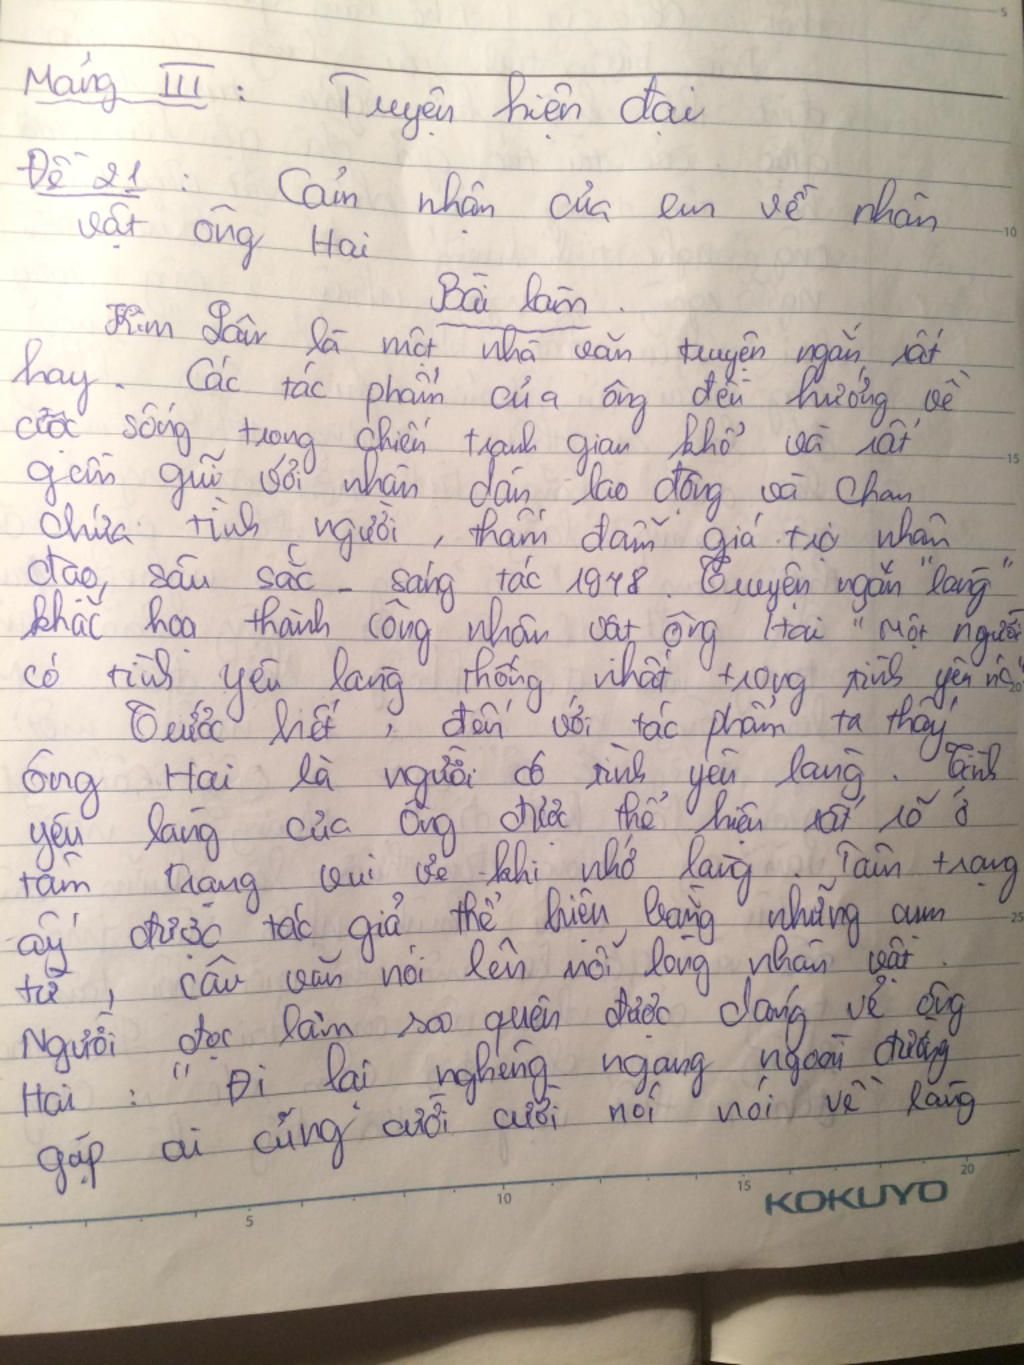 Mảng III : Truyện hiện đại
Đề 21 : Cản nhận của em về nhân
vật ông Hai
Bài làm.
Kim Lân là một nhà văn truyện ngắn rất
hay. Các tác phẩm của ông đều hướng về
cuộc sống trong chiến tranh gian khổ và rất
gần gũi với nhân dân lao động và chan
chứa tình người, thấm đẫm giá trị nhân
đạo, sâu sắc - sáng tác 1948. Truyện ngắn "làng"
khắc hoạ thành công nhân vật ông Hai "Một người
có tình yêu làng thống nhất trong tình yêu
Trước hết, đến với tác phẩm ta thấy
ông Hai là người có tình yêu làng. Tình
yêu làng của ông được thể hiện rất rõ ở
tâm trạng vui vẻ khi nhớ làng. Tâm trạng
ấy được tác giả thể hiện bằng những cụm
từ, câu văn nói lên nỗi lòng nhân vật.
Người đọc làm sao quên được dáng vẻ ông
Hai : "Đi lại nghênh ngang ngoài đường
gặp ai cũng cười cười nói nói về làng
5
10
15
20
KOKUYO